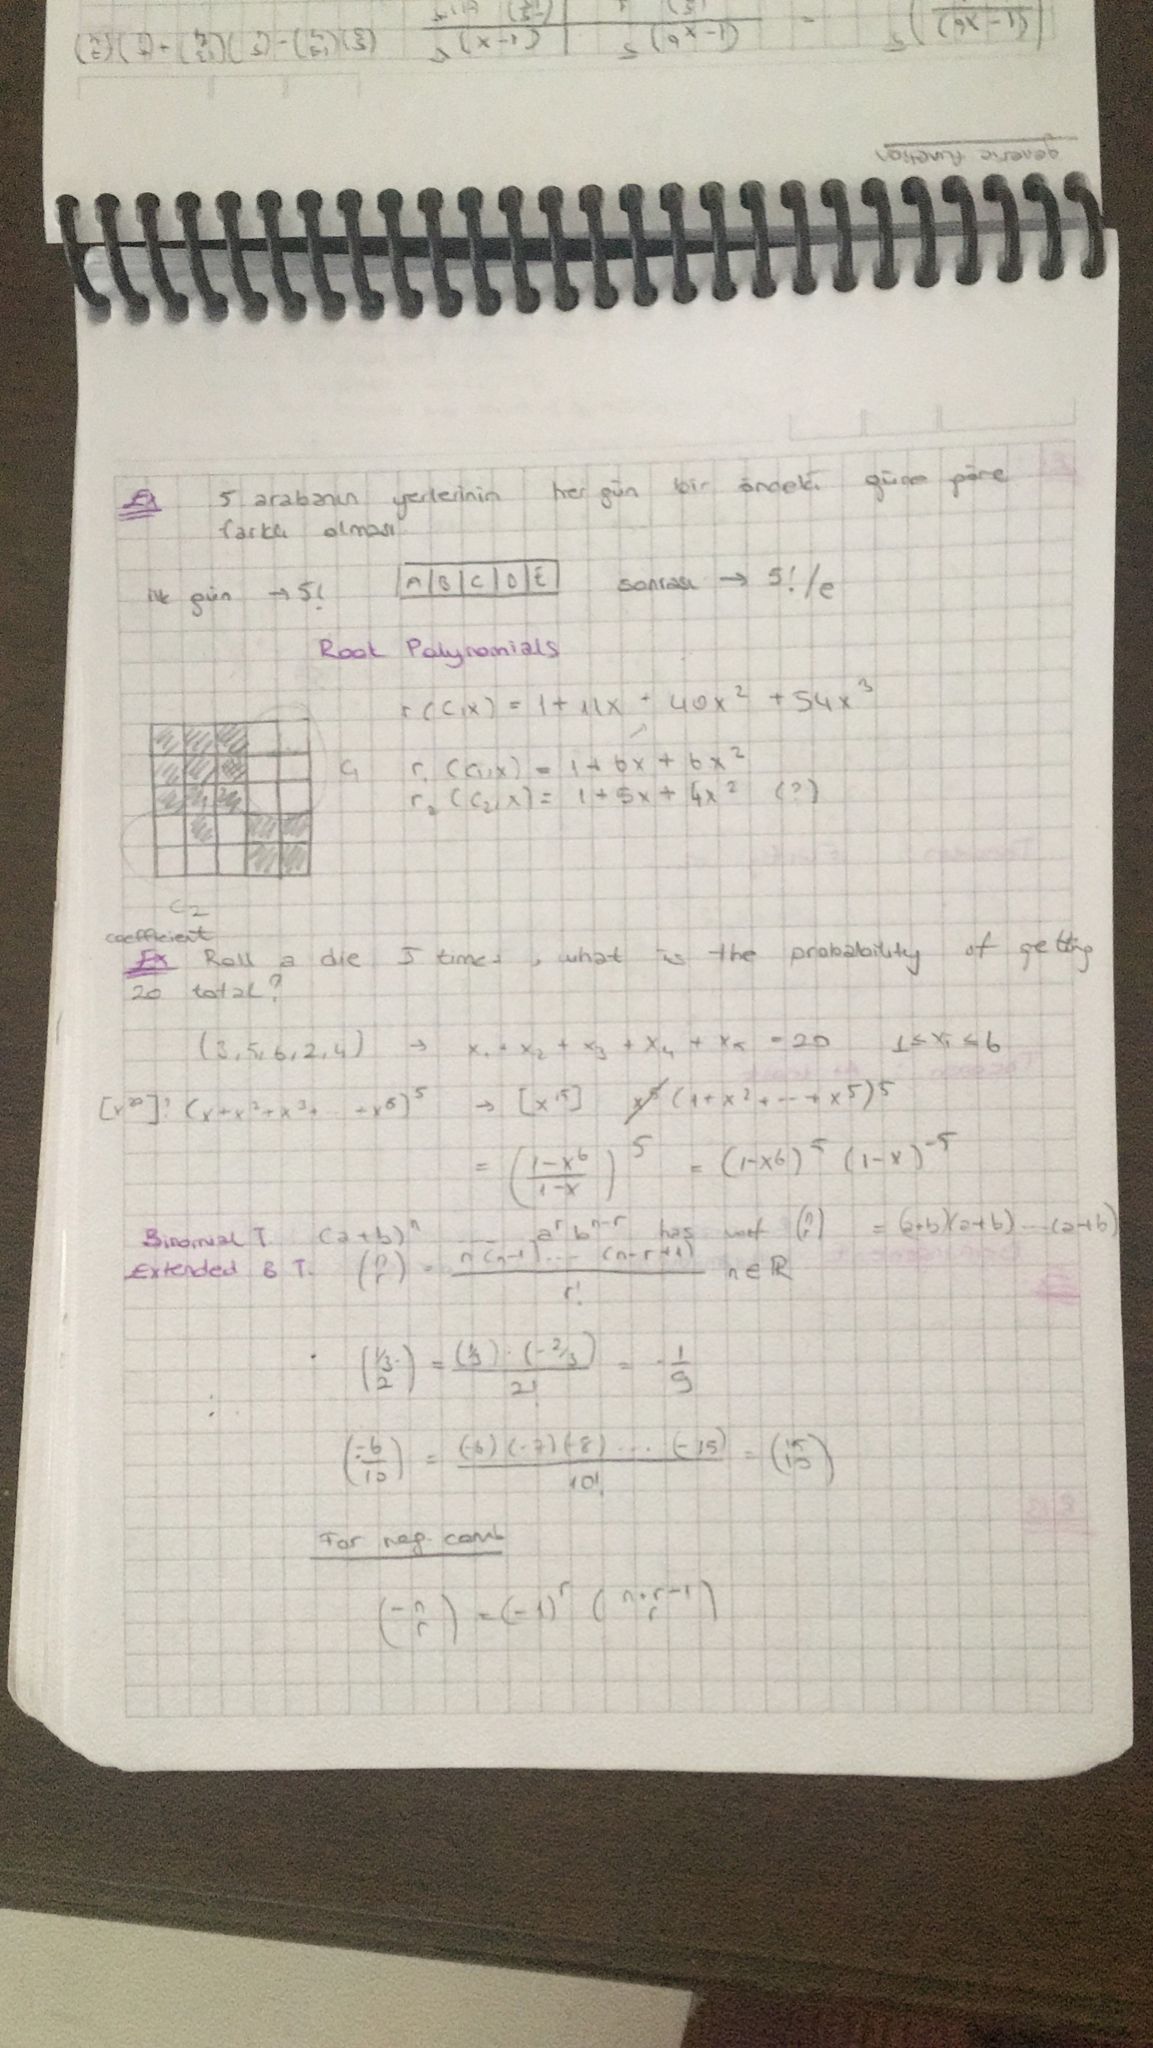 generic function
Ex 5 arabanın yerlerinin her gün bir önceki güne göre
farklı olması
ilk gün → 5!
A|B|C|D|E
sonrası → 5!/e
Rook Polynomials
r(C,x) = 1 + 11x + 40x² + 54x³
C₁ r₁(C₁,x) = 1 + 6x + 6x²
r₂(C₂,x) = 1 + 5x + 4x² (?)
C₂
coefficient
Ex Roll a die 5 times, what is the probability of getting
20 total?
(3,5,6,2,4) → x₁ + x₂ + x₃ + x₄ + x₅ = 20 1 ≤ xᵢ ≤ 6
[x²⁰]: (x+x²+x³+...+x⁶)⁵ → [x¹⁵] x⁵ (1+x²+...+x⁵)⁵
= ((1-x⁶)/(1-x))⁵ = (1-x⁶)⁵ (1-x)⁻⁵
Binomial T. (a+b)ⁿ .... aʳbⁿ⁻ʳ has (n r) = (a+b)(a+b)...(a+b)
Extended B T. (n r) = n(n-1)...(n-r+1) / r! n∈ℝ
(1/3 2) = (1/3)·(-2/3) / 2! = -1/9
(-6 10) = (-6)(-7)(-8)...(-15) / 10! = (15 10)
For neg. comb
(-n r) = (-1)ʳ (n+r-1 r)